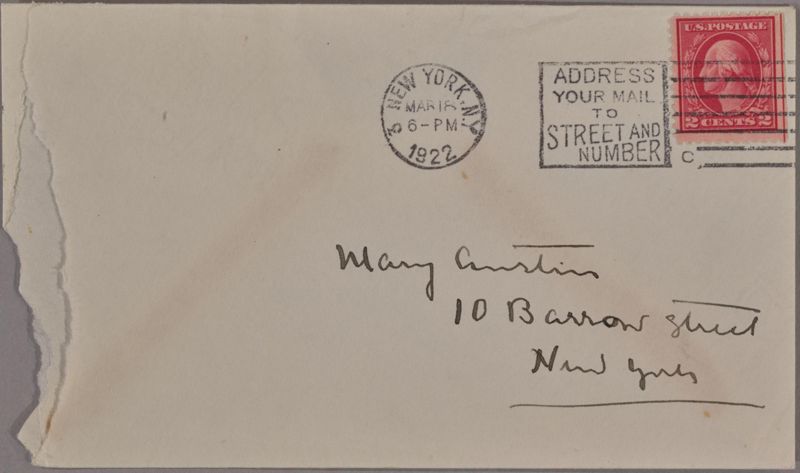 NEW YORK, N.Y.
3
MAR 18
6-PM
1922
ADDRESS
YOUR MAIL
TO
STREET AND
NUMBER
C
U.S. POSTAGE
2 CENTS 2
Mary Austin
10 Barrow Street
New York